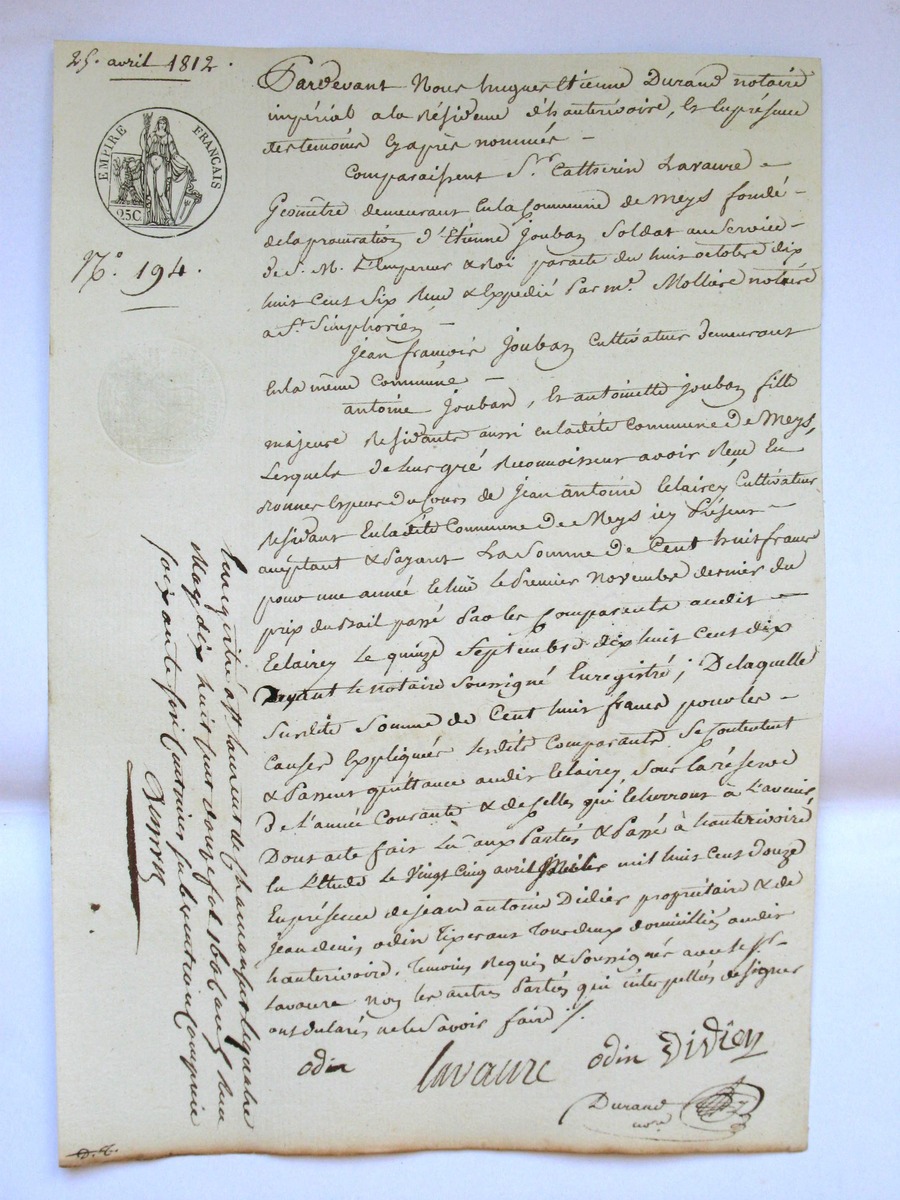 25. avril 1812.
EMPIRE FRANÇAIS
25C
N.° 194.
Pardevant Nous hugues Etienne Durand notaire
impérial a la Résidence d'hauterivoire, & En présence
des temoins Cyaprès nommés —
Comparaissent S.r Catherin Lavaure —
Geomêtre demeurant En la Commune de Meys fondé —
de la procuration d'Etienne Jouban Soldat au Service —
de S. M. L'Empereur & Roi par acte du huit octobre dix
huit Cent Six Reçu & Expedié Par m.e Mollière notaire
a S.t Simphorien —
Jean francois Jouban Cultivateur demeurant
En la même Commune —
antoine Jouban, & antoinette jouban fille
majeure Residants aussi En ladite Commune de Meys,
Lesquels de leur gré Reconnoissent avoir Reçu En
de Jean antoine Eclairey Cultivateur
Residant En ladite Commune de Meys icy Présent —
aceptant & Payant La Somme de Cent huit francs
pour une année Echue le Premier Novembre dernier du
prix du bail passé Par les Comparants audit —
Eclairey le quinze Septembre dix huit Cent dix
devant le notaire Soussigné Enregistré; De laquelle
Susdite Somme de Cent huit francs pour les —
Causes Expliquées lesdits Comparants Se Contentent
& Passent quittance audit Eclairey, Sous la réserve
De l'année Courante & de Celles qui Echerront à L'avenir
Dont acte fait Lu aux Parties & Passé à hauterivoire
En L'Etude Le Vingt Cinq avril mil huit Cent Douze
En présence de jean antoine Didier propriétaire & de
jean denis odin Tixerant Tous deux domiciliés audit
hauterivoire, Temoins Requis & Soussignés avec le S.r
Lavaure Non les autres Parties qui interpellées de Signer
ont declaré ne le Savoir faire ./.
odin lavaure odin Didier
Durand
no.re
Enregistré a St laurent de Chamousset le quatre
May dix huit cent douze fol
soixante six Centimes subvention Comprise
D. t.